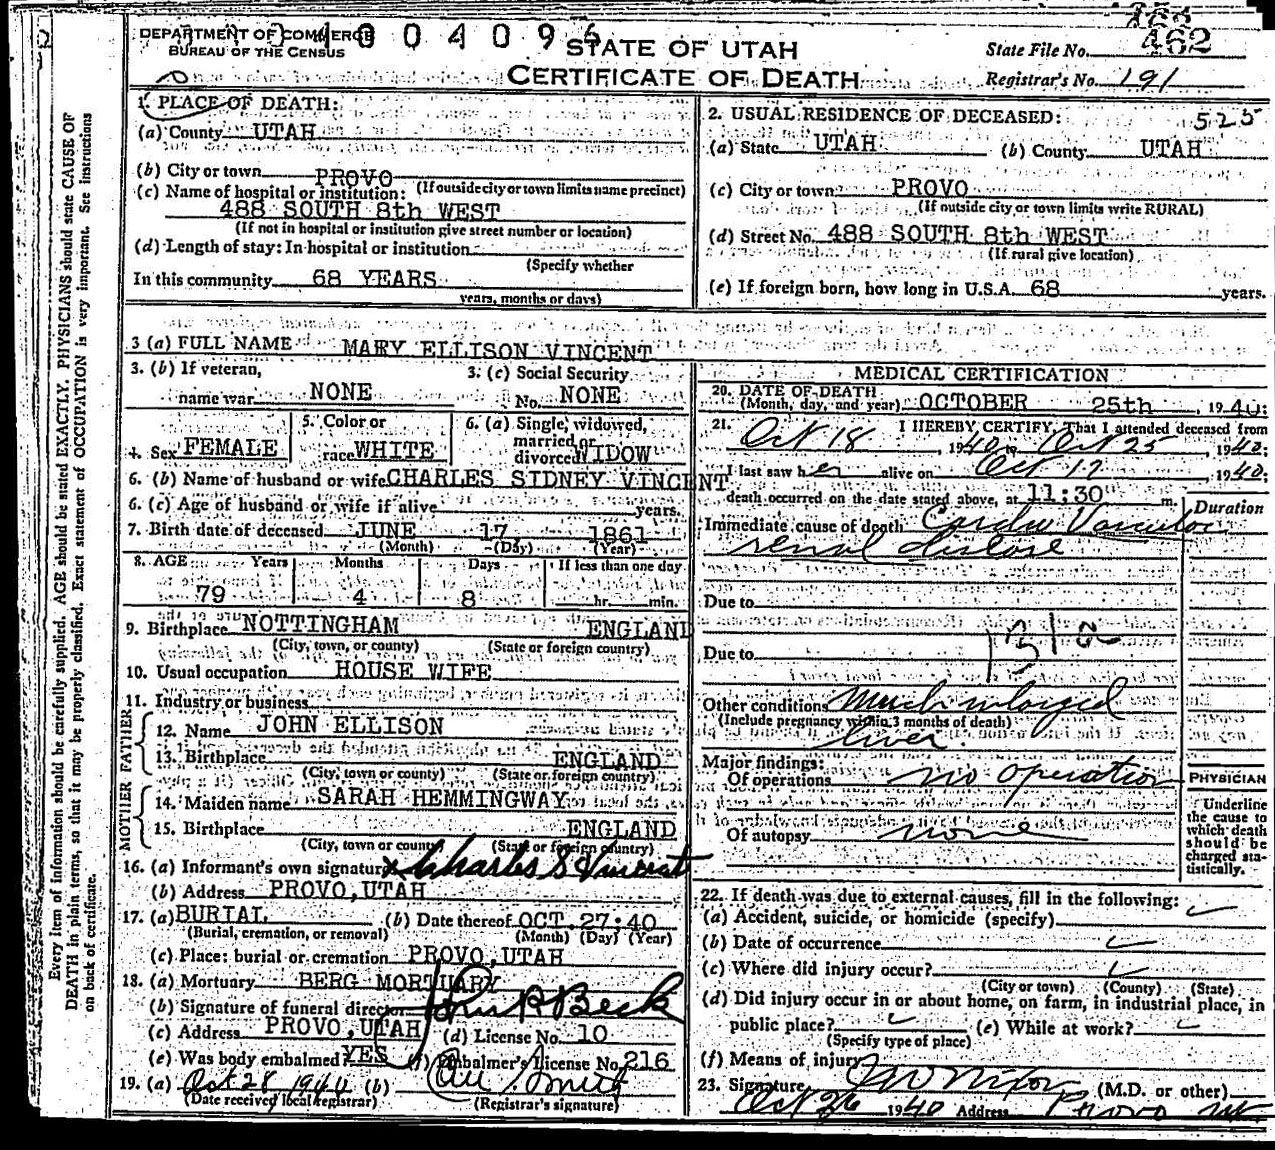 DEPARTMENT OF COMMERCE
BUREAU OF THE CENSUS
4 0 0 4 0 9 6
STATE OF UTAH
CERTIFICATE OF DEATH
State File No. 462
Registrar's No. 191
1. PLACE OF DEATH:
(a) County UTAH
(b) City or town PROVO
(If outside city or town limits name precinct)
(c) Name of hospital or institution:
488 SOUTH 8th WEST
(If not in hospital or institution give street number or location)
(d) Length of stay: In hospital or institution
(Specify whether
In this community 68 YEARS
years, months or days)
2. USUAL RESIDENCE OF DECEASED: 525
(a) State UTAH (b) County UTAH
(c) City or town PROVO
(If outside city or town limits write RURAL)
(d) Street No. 488 SOUTH 8th WEST
(If rural give location)
(e) If foreign born, how long in U.S.A. 68 years.
3 (a) FULL NAME MARY ELLISON VINCENT
3. (b) If veteran,
name war NONE
3. (c) Social Security
No. NONE
4. Sex FEMALE
5. Color or
race WHITE
6. (a) Single, widowed,
married or
divorced WIDOW
6. (b) Name of husband or wife CHARLES SIDNEY VINCENT
6. (c) Age of husband or wife if alive years.
7. Birth date of deceased JUNE 17 1861
(Month) (Day) (Year)
8. AGE Years Months Days If less than one day
79 4 8 hr. min.
9. Birthplace NOTTINGHAM ENGLAND
(City, town, or county) (State or foreign country)
10. Usual occupation HOUSE WIFE
11. Industry or business
FATHER
12. Name JOHN ELLISON
13. Birthplace ENGLAND
(City, town or county) (State or foreign country)
MOTHER
14. Maiden name SARAH HEMMINGWAY
15. Birthplace ENGLAND
(City, town or county) (State or foreign country)
16. (a) Informant's own signature x Charles S Vincent
(b) Address PROVO, UTAH
17. (a) BURIAL (b) Date thereof OCT. 27:40
(Burial, cremation, or removal) (Month) (Day) (Year)
(c) Place: burial or cremation PROVO, UTAH
18. (a) Mortuary BERG MORTUARY
(b) Signature of funeral director
(c) Address PROVO, UTAH (d) License No. 10
(e) Was body embalmed? YES (f) Embalmer's License No. 216
19. (a) Oct 28, 1940 (b)
(Date received local registrar) (Registrar's signature)
MEDICAL CERTIFICATION
20. DATE OF DEATH
(Month, day, and year) OCTOBER 25th, 1940:
21. I HEREBY CERTIFY, That I attended deceased from
Oct 18, 1940 to Oct 25, 1940;
I last saw her alive on Oct 17, 1940;
death occurred on the date stated above, at 11:30 m.
Duration
Immediate cause of death Cardio Vascular
renal disease
Due to
Due to
Other conditions Much inlarged
(Include pregnancy within 3 months of death)
liver.
Major findings:
Of operations no operation
Of autopsy none
PHYSICIAN
Underline
the cause to
which death
should be
charged sta-
tistically.
22. If death was due to external causes, fill in the following:
(a) Accident, suicide, or homicide (specify)
(b) Date of occurrence
(c) Where did injury occur?
(City or town) (County) (State)
(d) Did injury occur in or about home, on farm, in industrial place, in
public place? (e) While at work?
(Specify type of place)
(f) Means of injury
23. Signature (M.D. or other)
Oct 26 1940 Address Provo Ut.
Every item of information should be carefully supplied. AGE should be stated EXACTLY. PHYSICIANS should state CAUSE OF
DEATH in plain terms, so that it may be properly classified. Exact statement of OCCUPATION is very important. See instructions
on back of certificate.